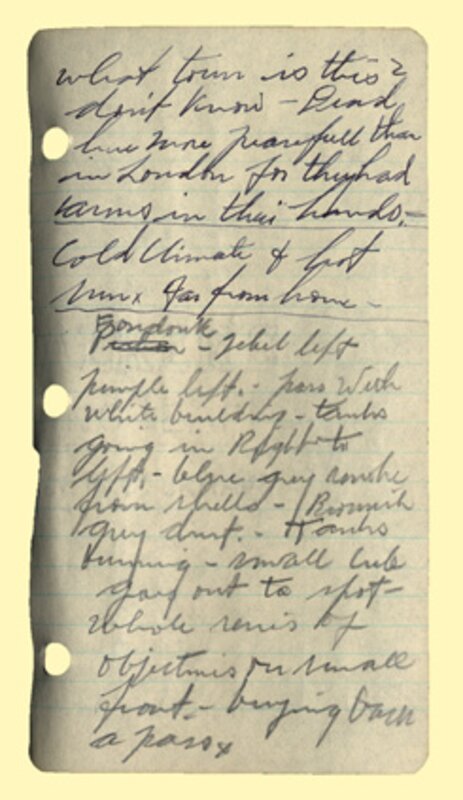 what town is this?
don't know - Dead
here more peacefull than
in London for they had
arms in their hands. -
Cold Climate & hot
sun x far from home -
Fondouk
- Jebel left
pimple left. - pass with
white building - tanks
going in Right to
left. - blue grey smoke
from shells - Brownish
grey dust. - tanks
burning - small
goes out to spot -
whole series of
objectives on small
front. - buying back
a pass x